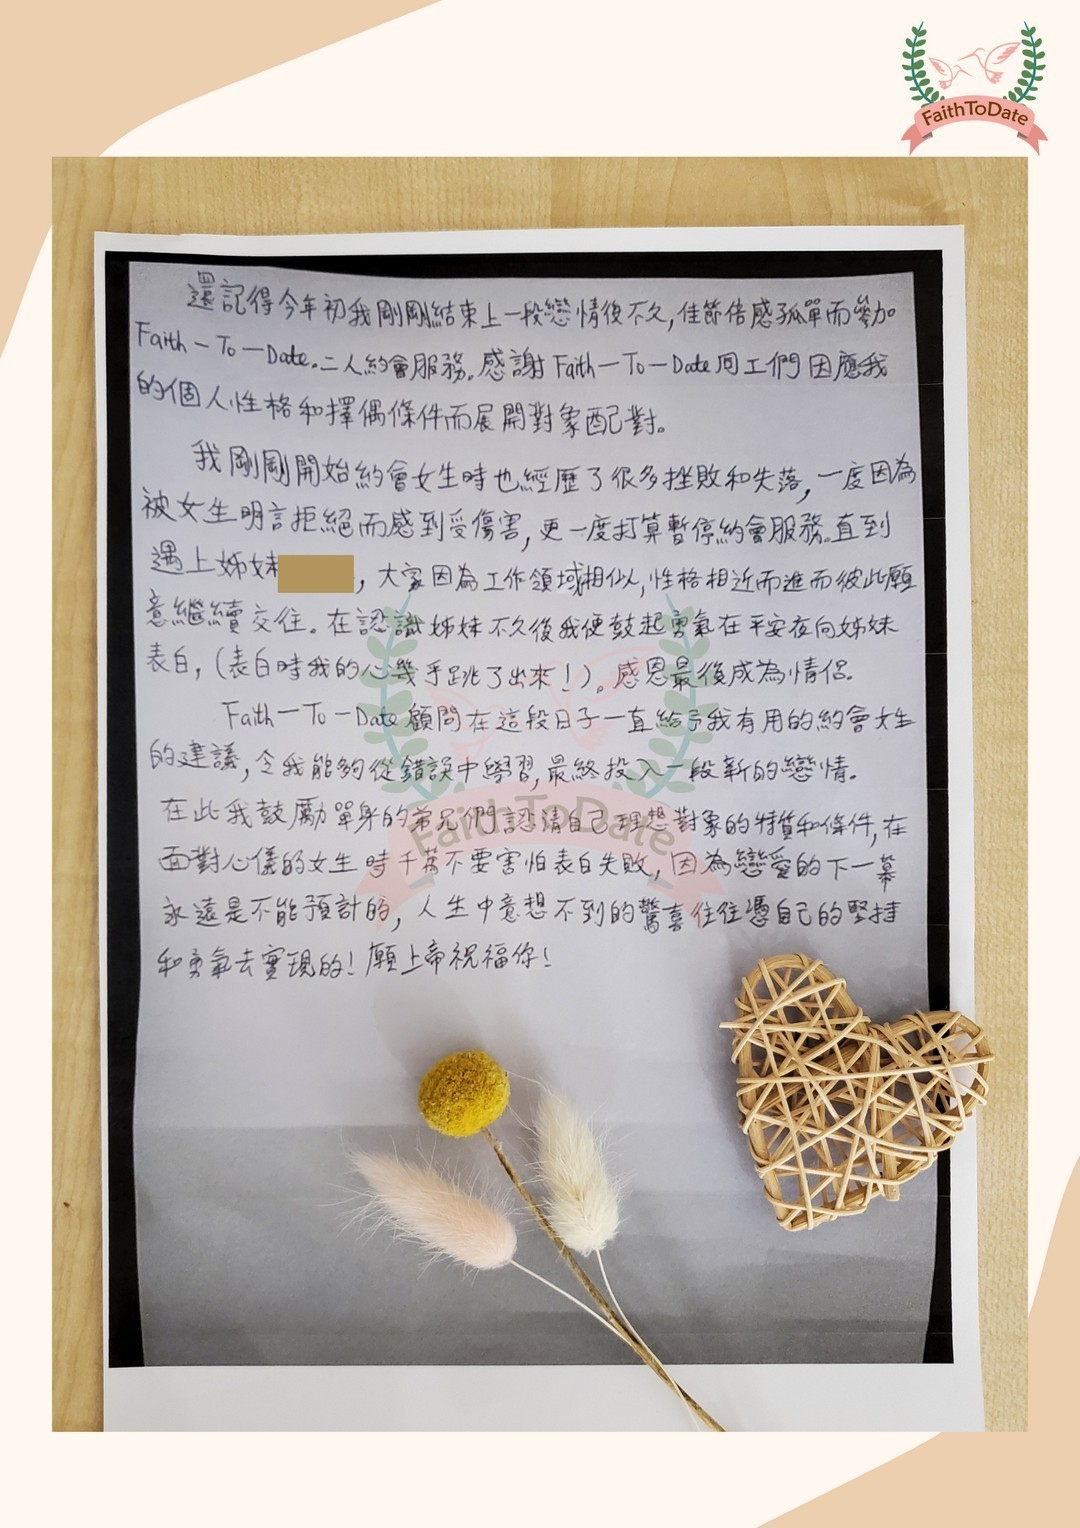 FaithToDate
還記得今年初我剛剛結束上一段戀情後不久,佳節倍感孤單而參加
Faith-To-Date.二人約會服務。感謝Faith-To-Date同工們因應我
的個人性格和擇偶條件而展開對象配對。
我剛剛開始約會女生時也經歷了很多挫敗和失落,一度因為
被女生明言拒絕而感到受傷害,更一度打算暫停約會服務。直到
遇上姊妹,大家因為工作領域相似,性格相近而進而彼此願
意繼續交往。在認識姊妹不久後我便鼓起勇氣在平安夜向姊妹
表白,(表白時我的心幾乎跳了出來!)。感恩最後成為情侶。
Faith-To-Date顧問在這段日子一直給予我有用的約會女生
的建議,令我能夠從錯誤中學習,最終投入一段新的戀情。
在此我鼓勵單身的弟兄們認清自己理想對象的特質和條件,在
面對心儀的女生時千萬不要害怕表白失敗,因為戀愛的下一幕
永遠是不能預計的,人生中意想不到的驚喜往往憑自己的堅持
和勇氣去實現的!願上帝祝福你!
FaithToDate